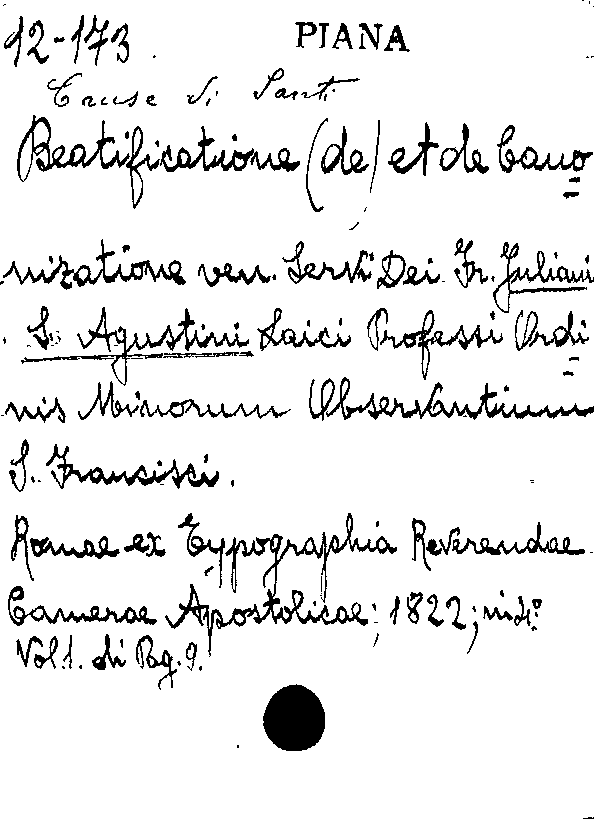 12-173. PIANA
Cause di Santi
Beatificatione (de) et de Cano=
nizatione ven. Servi Dei Fr. Juliani
S. Agustini Laici Professi Ordi=
nis Minorum Observantium
S. Francisci.
Romae ex Typographia Reverendae
Camerae Apostolicae; 1822; in 4º.
Vol. 1. di Pag. 9.